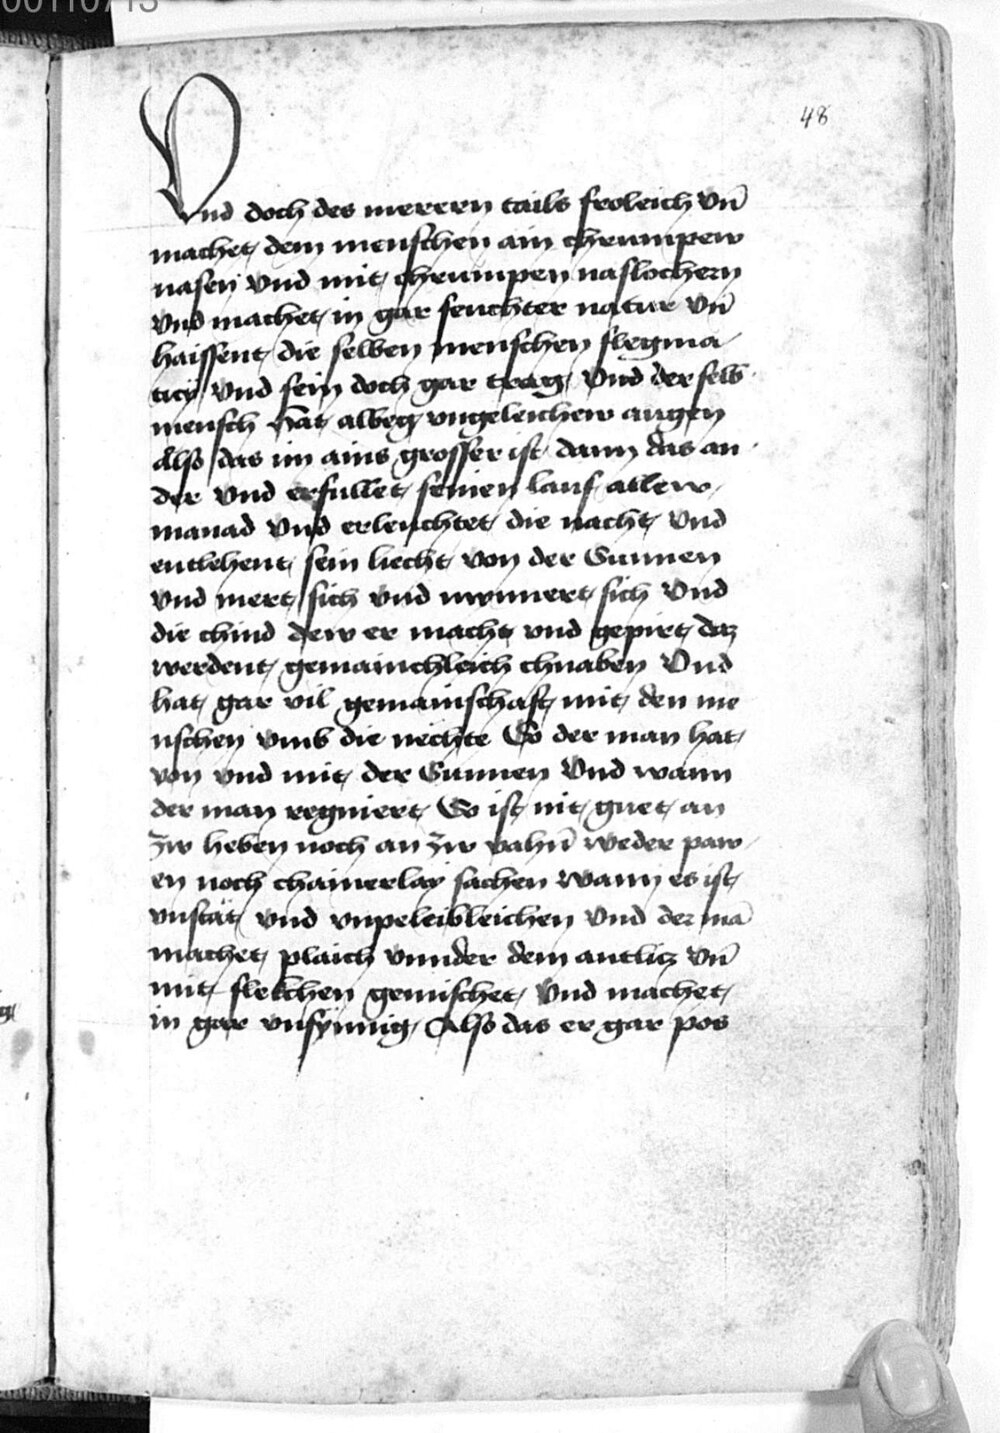 00110713
48
Und doch des merern tails froleich vn̄
machet dem menschen ain chrumpew
nasen vnd mit chrumpen naslochern
vnd machet in gar feuchter natur vn̄
haissent die selben menschen flegma
ticy vnd sein doch gar trag vnd der selb
mensch hat albeg vngeleichew augen
Also das im ains grosser ist dann das an
der vnd erfullet seinen lauf allew
manad vnd erleuchtet die nacht vnd
entlehent sein liecht von der Sunnen
vnd mert sich vnd mynnert sich vnd
die chind dew er macht vnd gepirt daz
werdent gemainchleich chnaben Vnd
hat gar vil gemainschaft mit den me
nschen vmb die nechte So der man hat
von vnd mit der Sunnen Vnd wann
der man regniert So ist nit guet an
zw heben noch an zw vahn̄ weder paw
en noch chainerlay sachen wann es ist
vnstät vnd vnpeleibleichen vnd der mā
machet plaich vnnder dem antlicz vn̄
mit flekchen gemischet vnd machet
in gar vnsynnig Also das er gar pos